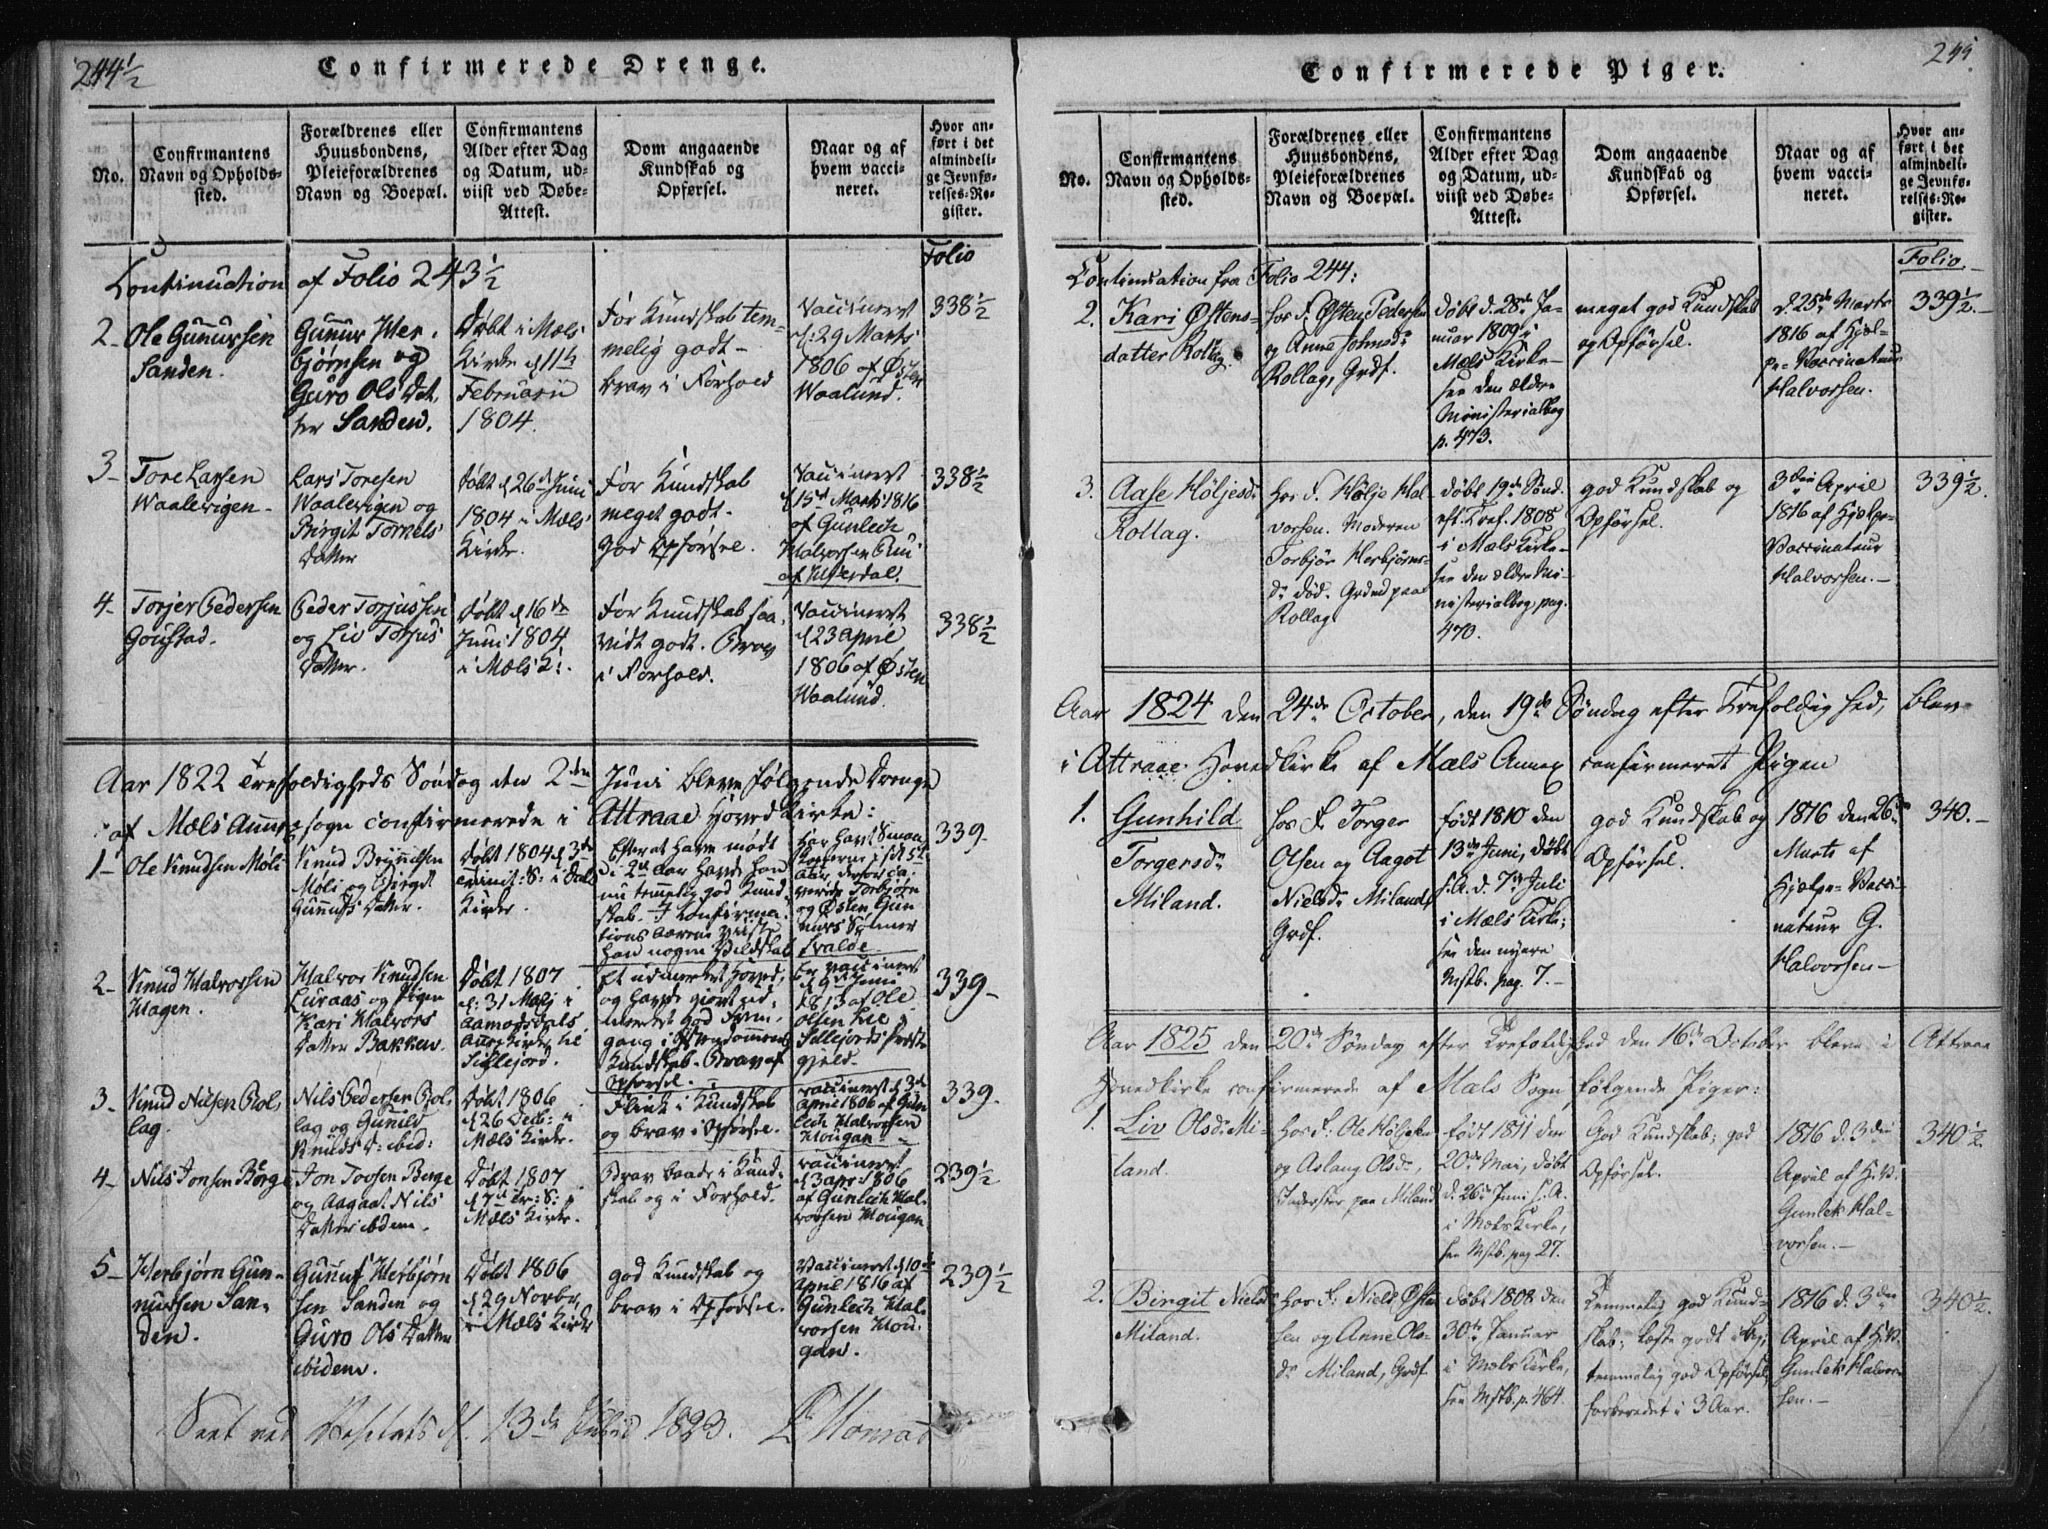 244½
Confirmerede Drenge.
No.
Confirmantens
Navn og Opholds-
sted.
Forældrenes eller
Huusbondens,
Pleieforældrenes
Navn og Boepæl.
Confirmantens
Alder efter Dag
og Datum, ud-
viist ved Døbe-
Attest.
Dom angaaende
Kundskab og
Opførsel.
Naar og af
hvem vacci-
neret.
Hvor an-
ført i det
almindeli-
ge Jevnfø-
relses-Re-
gister.
Folio
Continuation af Folio 243½
2-
Ole Gunursen
Sanden.
Gunur Her-
bjørnsen og
Guro Ols Dat,
ter Sanden.
Døbt i Mæls
Kirke d 11te
Februarii
1804.
For Kundskab tem-
melig godt-
brav i Forhold
Vaccineret
d: 29 Marts
1806 af Østen
Waalund.
338½
3-
Tore Larsen
Waalevigen-
Lars Toresen
Waalevigen og
Birgit Torkels
Datter
Døbt d 26d Juni
1804 i Mæls
Kirke.
For Kundskab
meget godt-
god Opførsel.
Vaccineret
d 15d Marts 1816
af Gunlech
Halvorsen
af
338½
4-
Torjer Pedersen
Goustad.
Peder Torjussen
og Liv Torjus
Datter.
Døbt d 16de
Juni 1804
i Mæls K:.
For Kundskab saa-
vidt godt. Brav
i Forhold.
Vaccineret
d 23 april
1806 af Østen
Waalund.
338½
Aar 1822 Trefoldigheds Søndag den 2den Juni bleve følgende Drenge
af Mæls Annexsogn confirmerede i Attraae Hovedkirke:
1-
Ole Knudsen Møli
Knud Brynnelsen
Møli og Birgit
Gunnufs Datter.
Døbt 1804 d 3de
Trinit: S: i Dals
Kirke.
Efter at have mødt
i 2de Aar havde han
nu temmelig god Kund-
skab. I Confirma-
tions Aarene viiste
han nogen
har havt Smaa
Kopperne i sit 5te
Aar, derfor ca-
verede Torbjørn
og Østen Gun
nurs Sønner
Svalde.
339-
2-
Knud Halvorsen
Hagen.
Halvor Knudsen
Luraas og Pigen
Kari Halvors
Datter Bakken.
Døbt 1807
d: 31 Maji i
Aamodsdals
Annexkirke til
Sillejord.
Et udmærket Hoved,
og havde giort ud-
mærket god Frem-
gang i Christendommens
Kundskab. Brav af
Opførsel.
Er vaccineret
d 9de Juni
1813 af Ole
Olsen Lie i
Sillejords Præste
gjeld.
339-
3-
Knud Nilsen Rol
lag.
Nils Pedersen Rol,
lag og Gunild
Knuds D: ibid:
Døbt 1806
d 26 Decb: i
Mæls Kirke.
Flink i Kundskab
og brav i Opførsel.
vaccineret d 3de
April 1806 af Gun
lech Halvorsen
Hougan.
339.
4-
Nils Jonsen Børge
Jon Torsen Børge
og Aagaat Nils
Datter ibidem.
Døbt 1807
d 7de Tr: S: i
Mæls Kirke.
Brav baade i Kund-
skab og i Forhold.
vaccineret
d 3 apr: 1806
af Gunlech Hal-
vorsen Hougan
239½
5-
Herbjørn Gun-
nursen San-
den.
Gunnuf Herbjørn
sen Sanden og
Guro Ols Datter
ibidem.
Døbt 1806
d 29 Novbr
i Mæls Kirke
god Kundskab og
brav i Opførsel.
Vaccineret d 10de
April 1816 af
Gunlech Hal-
vorsen Hou-
gan.
239½
Seet ved d. 13de 1823. Monrad
245.
Confirmerede Piger.
No.
Confirmantens
Navn og Opholds-
sted.
Forældrenes eller
Huusbondens,
Pleieforældrenes
Navn og Boepæl.
Confirmantens
Alder efter Dag
og Datum, ud-
viist ved Døbe-
Attest.
Dom angaaende
Kundskab og
Opførsel.
Naar og af
hvem vacci-
neret.
Hvor an-
ført i det
almindeli-
ge Jevnfø-
relses-Re-
gister.
Folio.
Continuation fra Folio 244:
2.
Kari Østens-
datter Rollag.
hos F. Østen Pedersen
og Anne Johnsdr
Rollag, Grdf.
døbt d. 28de Ja-
nuar 1809 i
Mæls Kirke-
see den ældre
Ministerialbog
p. 473.
meget god Kundskab
og Opførsel.
d. 25de Marts
1816 af Hjæl-
pe-Vaccinateur
Halvorsen.
339½.
3.
Aase Høljesdr
Rollag.
hos F. Hølje Hal
vorsen. Moderen
Torbjør Herbjørns-
dr død. Grdmd paa
Rollag.
døbt 19de Sønd.
eft. Tref. 1808
i Mæls Kirke-
see den ældre Mi-
nisterialbog, pag.
470.
god Kundskab og
Opførsel.
3die April
1816 af Hjælpe-
Vaccinateur
Halvorsen.-
339½.
Aar 1824 den 24de October, den 19de Søndag efter Trefoldighed, blev
i Attraae Hovedkirke af Mæls Annex confirmeret Pigen
1.
Gunhild
Torgersdr
Miland.
hos F. Torger
Olsen og Aagot
Nielsdr Miland,
Grdf.
født 1810 den
13de Juni, døbt
s. A. d. 7de Juli
i Mæls Kirke;
see den nyere
Mstb. pag. 7.-
god Kundskab og
Opførsel.
1816 den 26de
Marts af
Hjælpe-Vacci-
nateur G.
Halvorsen-
340.-
Aar 1825 den 20de Søndag efter Trefoldighed den 16de October bleve i Attraae
Hovedkirke confirmerede af Mæls Sogn følgende Piger:
1.
Liv Olsdr Mi-
land.
Hos F: Ole Høljesen
og Aslaug Olsdr,
Inderster paa Miland
født 1811 den
20de Mai, døbt
d. 26de Juni s. A.
i Mæls Kirke,
see Mstb. pag 27.
God Kundskab; god
Opførsel.
1816 d. 3die
April af H.V.
Gunlek Hal-
vorsen.-
340½.
2.
Birgit Nielsdr
Miland.
Hos F: Niels Østen
sen og Anne Ols-
dr Miland, Grdf.
døbt 1808 den
30te Januar
i Mæls Kirke,
see Mstb. p. 464.
Temmelig god Kund-
skab; læste godt i Bog;
temmelig god Opførsel;
forberedet i 3 Aar.
1816 d. 3die
April af H.V.
Gunlek Halvor-
sen.-
340½.